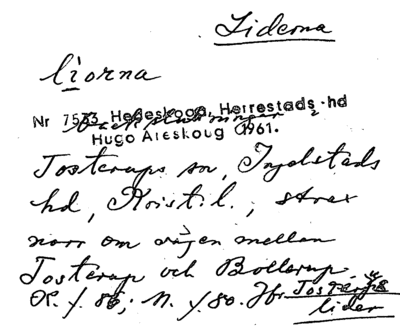 Liderna
līorna
Nr 7533 Hedeskoga, Herrestads hd
Hugo Areskoug 1961.
Tosterups sn, Ingelstads
hd, Krist. l., strax
norr om vägen mellan
Tosterup och Bollerup.
Jfr Tosterups
lider